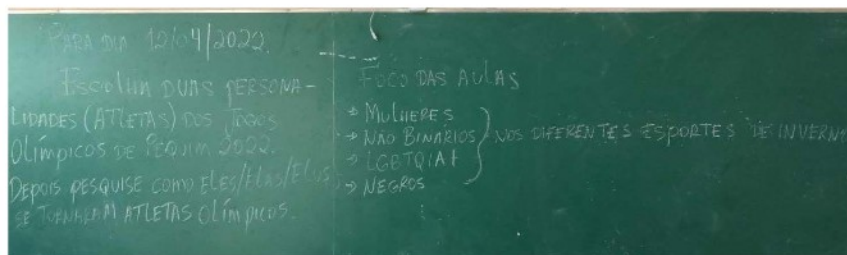 PARA DIA 12/04/2022.
ESCOLHA DUAS PERSONA-
LIDADES (ATLETAS) DOS JOGOS
OLÍMPICOS DE PEQUIM 2022.
DEPOIS PESQUISE COMO ELES/ELAS/ELUS
SE TORNARAM ATLETAS OLÍMPICOS.
FOCO DAS AULAS
→ MULHERES
→ NÃO BINÁRIOS
→ LGBTQIA+
→ NEGROS
} NOS DIFERENTES ESPORTES DE INVERNO